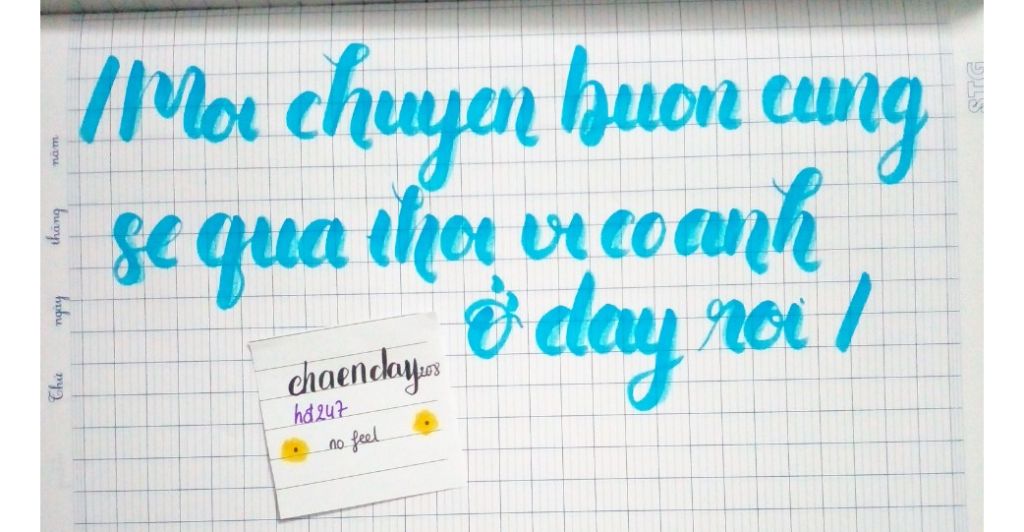 /Moi chuyen buon cung
se qua thoi vi co anh
ở day roi /
chaenday208
hđ247
no feel
Thứ ngày tháng năm
STG